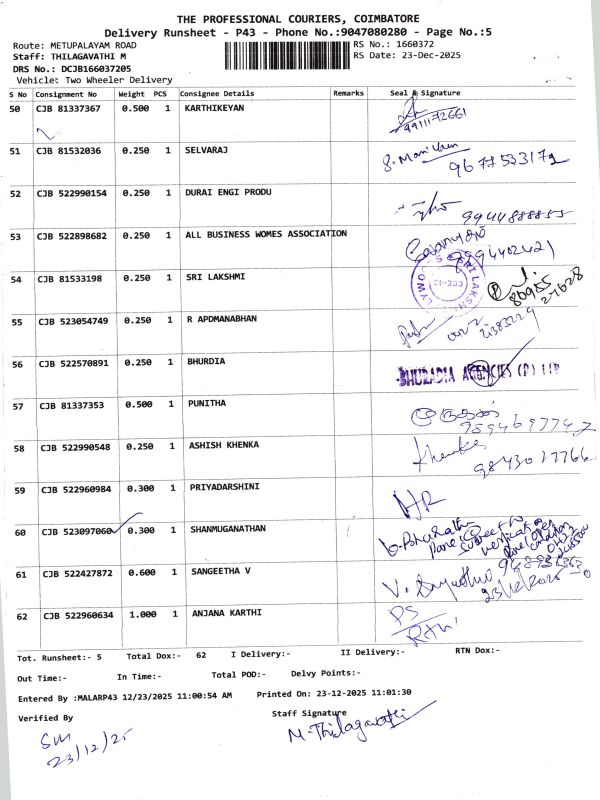 THE PROFESSIONAL COURIERS, COIMBATORE
Delivery Runsheet - P43 - Phone No.:9047080280 - Page No.:5
Route: METUPALAYAM ROAD RS No.: 1660372
Staff: THILAGAVATHI M RS Date: 23-Dec-2025
DRS No.: DCJB166037205
Vehicle: Two Wheeler Delivery
S No Consignment No Weight PCS Consignee Details Remarks Seal & Signature
50 CJB 81337367 0.500 1 KARTHIKEYAN
51 CJB 81532036 0.250 1 SELVARAJ
9677533172
52 CJB 522990154 0.250 1 DURAI ENGI PRODU
9944888855
53 CJB 522898682 0.250 1 ALL BUSINESS WOMES ASSOCIATION
54 CJB 81533198 0.250 1 SRI LAKSHMI
80955
27628
55 CJB 523054749 0.250 1 R APDMANABHAN
56 CJB 522570891 0.250 1 BHURDIA
BHURADIA AGENCIES (P) LTD
57 CJB 81337353 0.500 1 PUNITHA
58 CJB 522990548 0.250 1 ASHISH KHENKA
Khenka
9843027766
59 CJB 522960984 0.300 1 PRIYADARSHINI
60 CJB 523097060 0.300 1 SHANMUGANATHAN
61 CJB 522427872 0.600 1 SANGEETHA V
23/12/2025
62 CJB 522960634 1.000 1 ANJANA KARTHI
Tot. Runsheet:- 5 Total Dox:- 62 I Delivery:- II Delivery:- RTN Dox:-
Out Time:- In Time:- Total POD:- Delvy Points:-
Entered By :MALARP43 12/23/2025 11:00:54 AM Printed On: 23-12-2025 11:01:30
Verified By Staff Signature
SM M.Thilagavathi
23/12/25